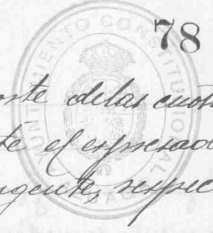 78
AYUNTAMIENTO CONSTITUCIONAL
nte delas cuot
te el espresad
ngente, respec